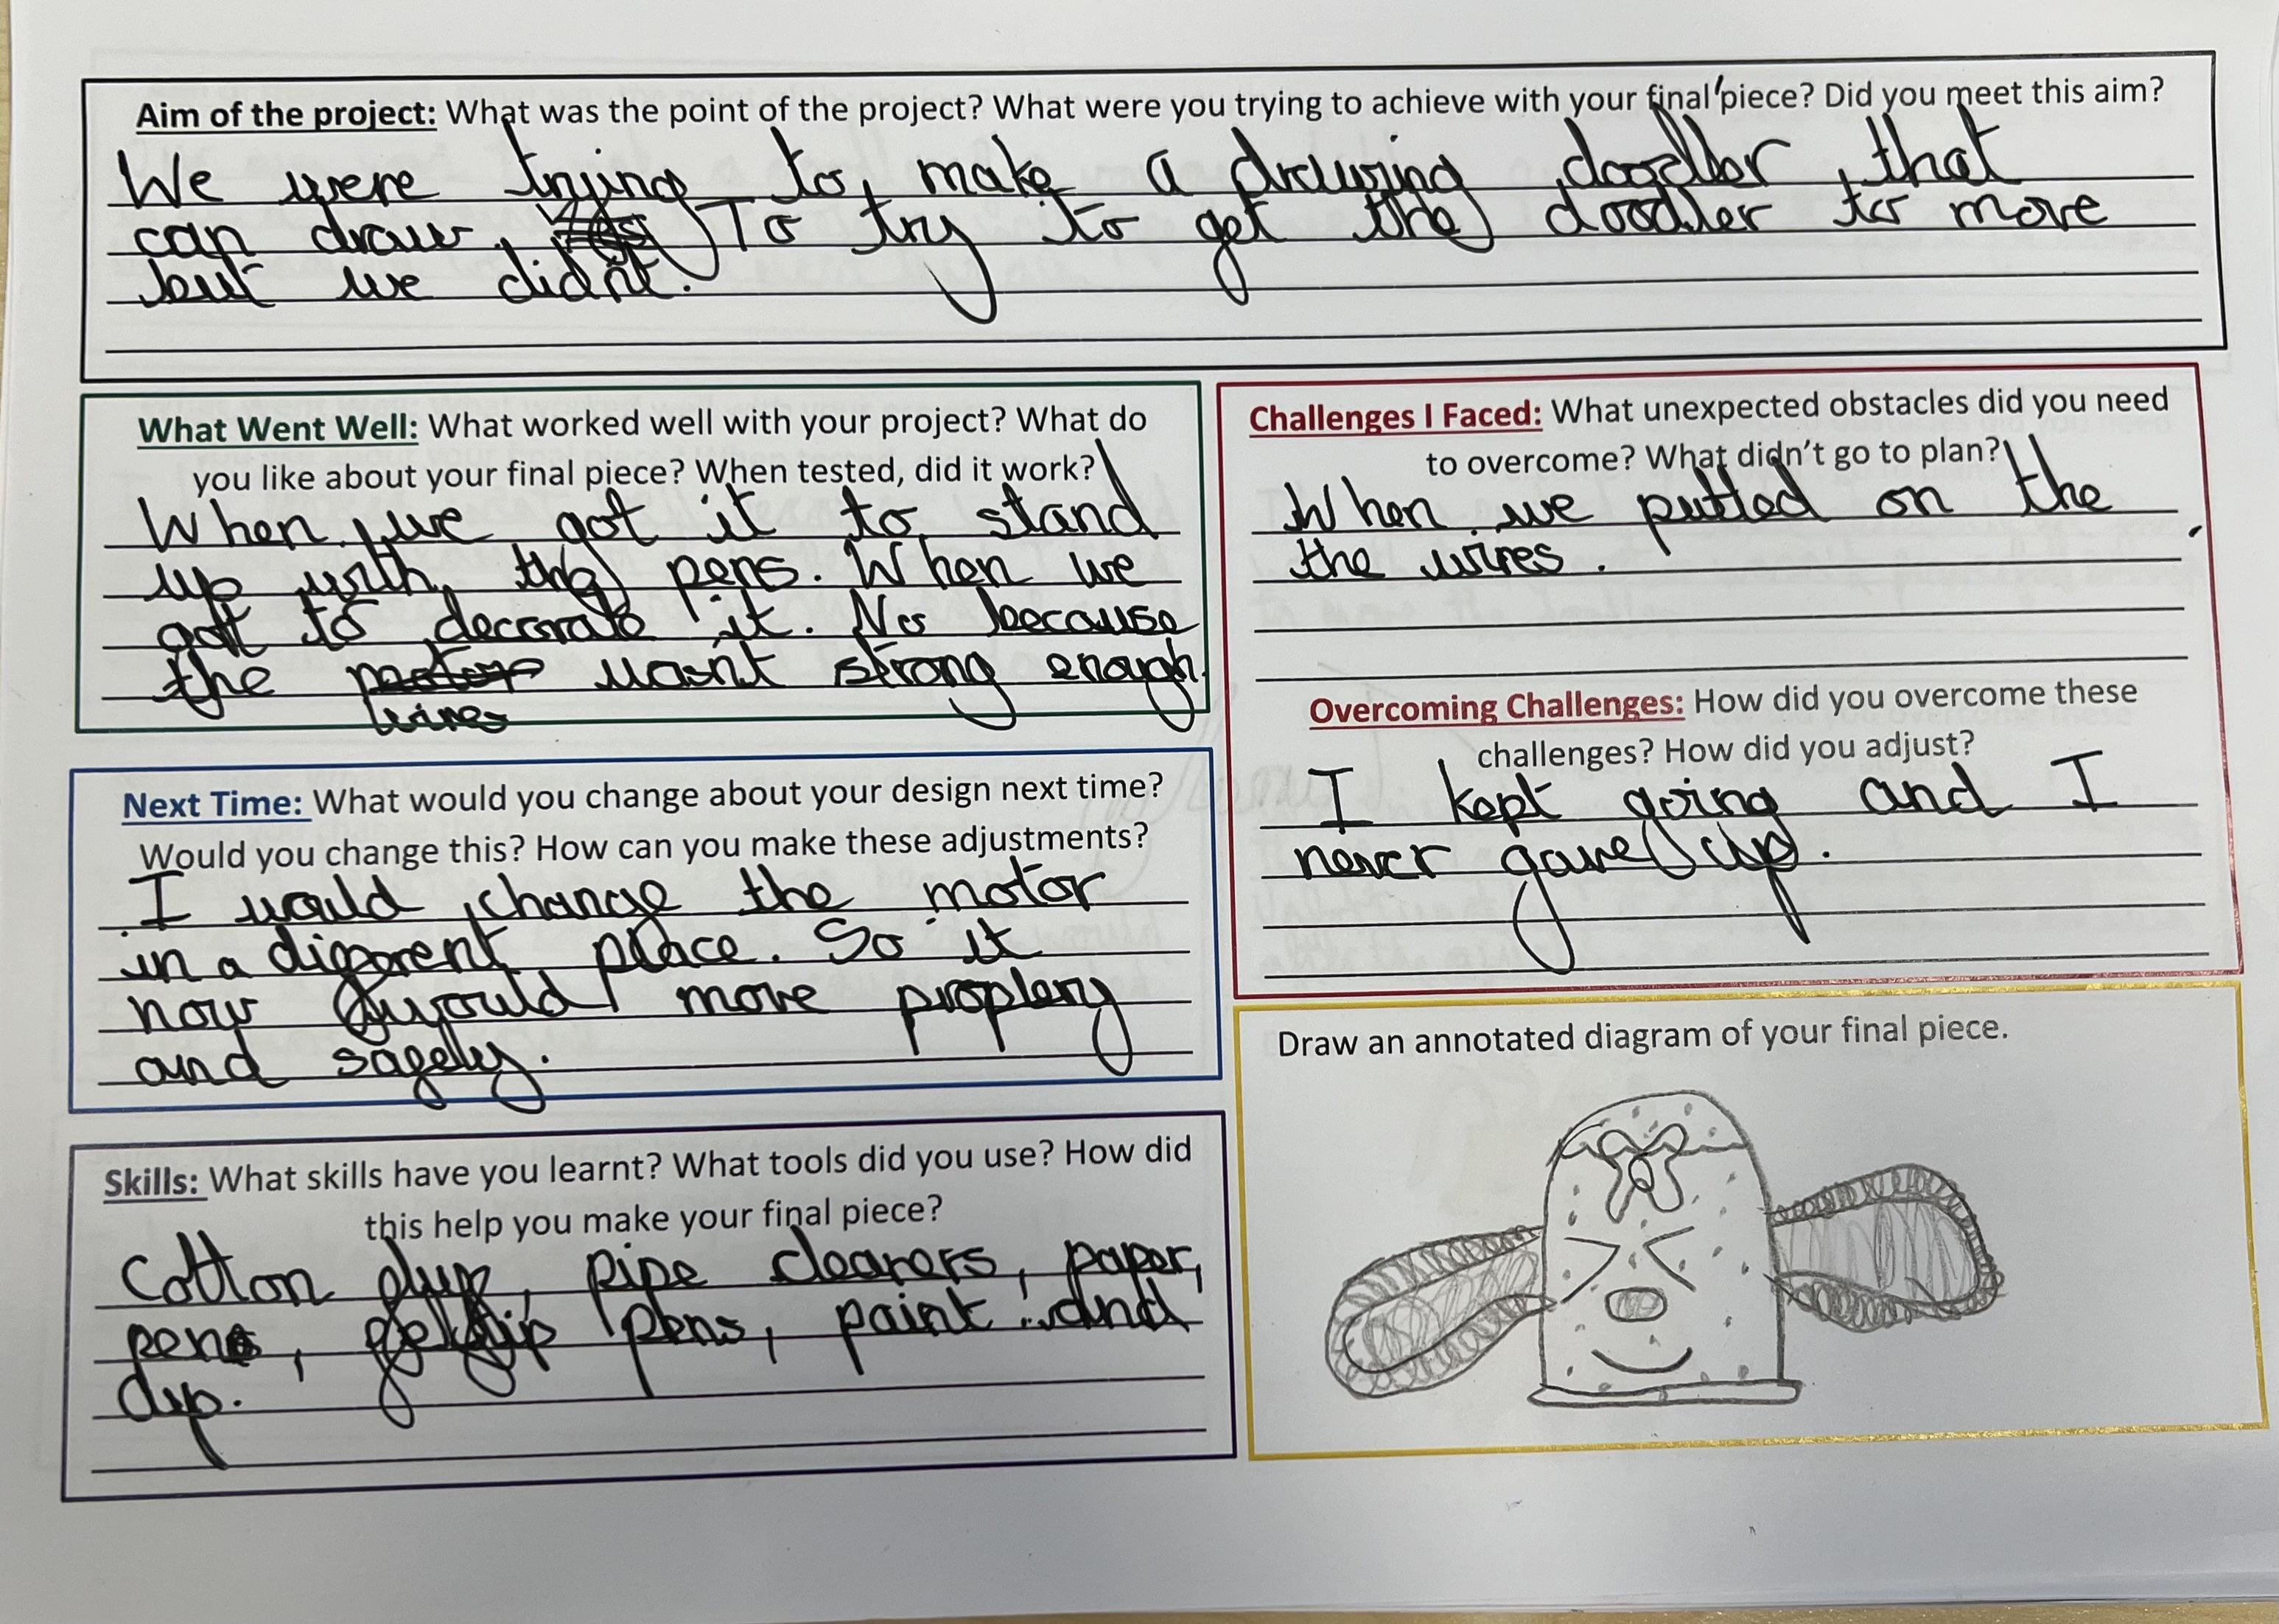 Aim of the project: What was the point of the project? What were you trying to achieve with your final piece? Did you meet this aim?
We were trying to make a drawing doodler that
can draw. To try to get the doodler to move
but we didn't.
What Went Well: What worked well with your project? What do
you like about your final piece? When tested, did it work?
When we got it to stand
up with the pens. When we
got to decorate it. No because
the motor wasn't strong enough.
wires
Challenges I Faced: What unexpected obstacles did you need
to overcome? What didn't go to plan?
When we putted on the
the wires.
Overcoming Challenges: How did you overcome these
challenges? How did you adjust?
I kept going and I
never gave up.
Next Time: What would you change about your design next time?
Would you change this? How can you make these adjustments?
I would change the motor
in a different place. So it
now would move proplery
and safely.
Skills: What skills have you learnt? What tools did you use? How did
this help you make your final piece?
Cotton pipe clearers, paper,
pens, pens, paint and
Draw an annotated diagram of your final piece.